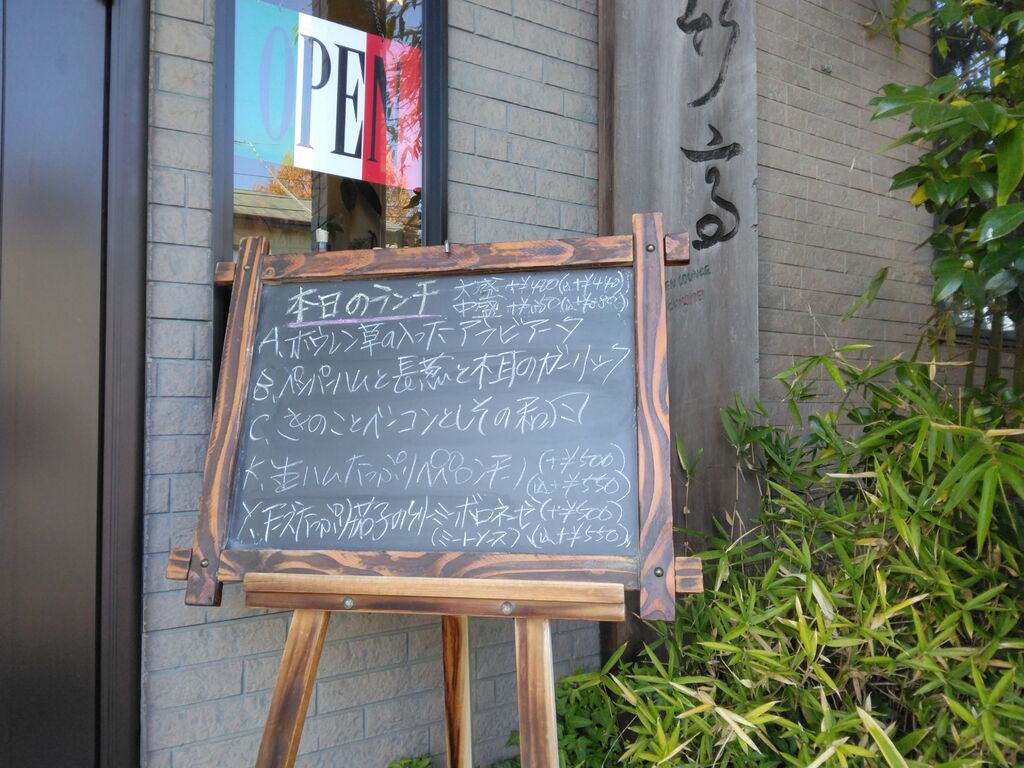 OPEN
本日のランチ
大盛 +¥400(込+¥440)
中盛
A.ホウレン草の入ったアラビアータ
B.ペパーハムと長葱と木耳のガーリック
C.きのことベーコンとしその和風
X.生ハムたっぷりペペロンチーノ(+¥500
(込+¥550)
Y.チーズたっぷり茄子のクリーミーボロネーゼ(+¥500
(ミートソース)(込+¥550)